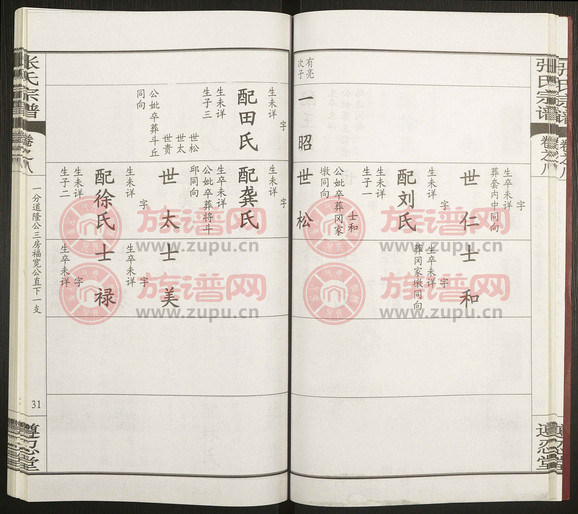 张氏宗谱
卷之八
遵忍堂
有亮
次子
一昭
字
生未详
配田氏
生未详
生子三
世松
世太
世贵
公妣卒葬斗丘
同向
生卒未详
葬套内中同向
字
世仁
字
生未详
配刘氏
生未详
生子一
士和
公妣卒葬冈家
墩同向
世松
字
生未详
配龚氏
生卒未详
公妣卒葬将斗
邱同向
世太
字
生未详
配徐氏
生未详
生子二
士和
字
生卒未详
葬冈家墩同向
士美
字
生卒未详
士禄
字
生卒未详
一分道隆公三房福宽公直下一支
31
张氏宗谱
卷之八
遵忍堂
族谱网
www.zupu.cn
族谱网
www.zupu.cn